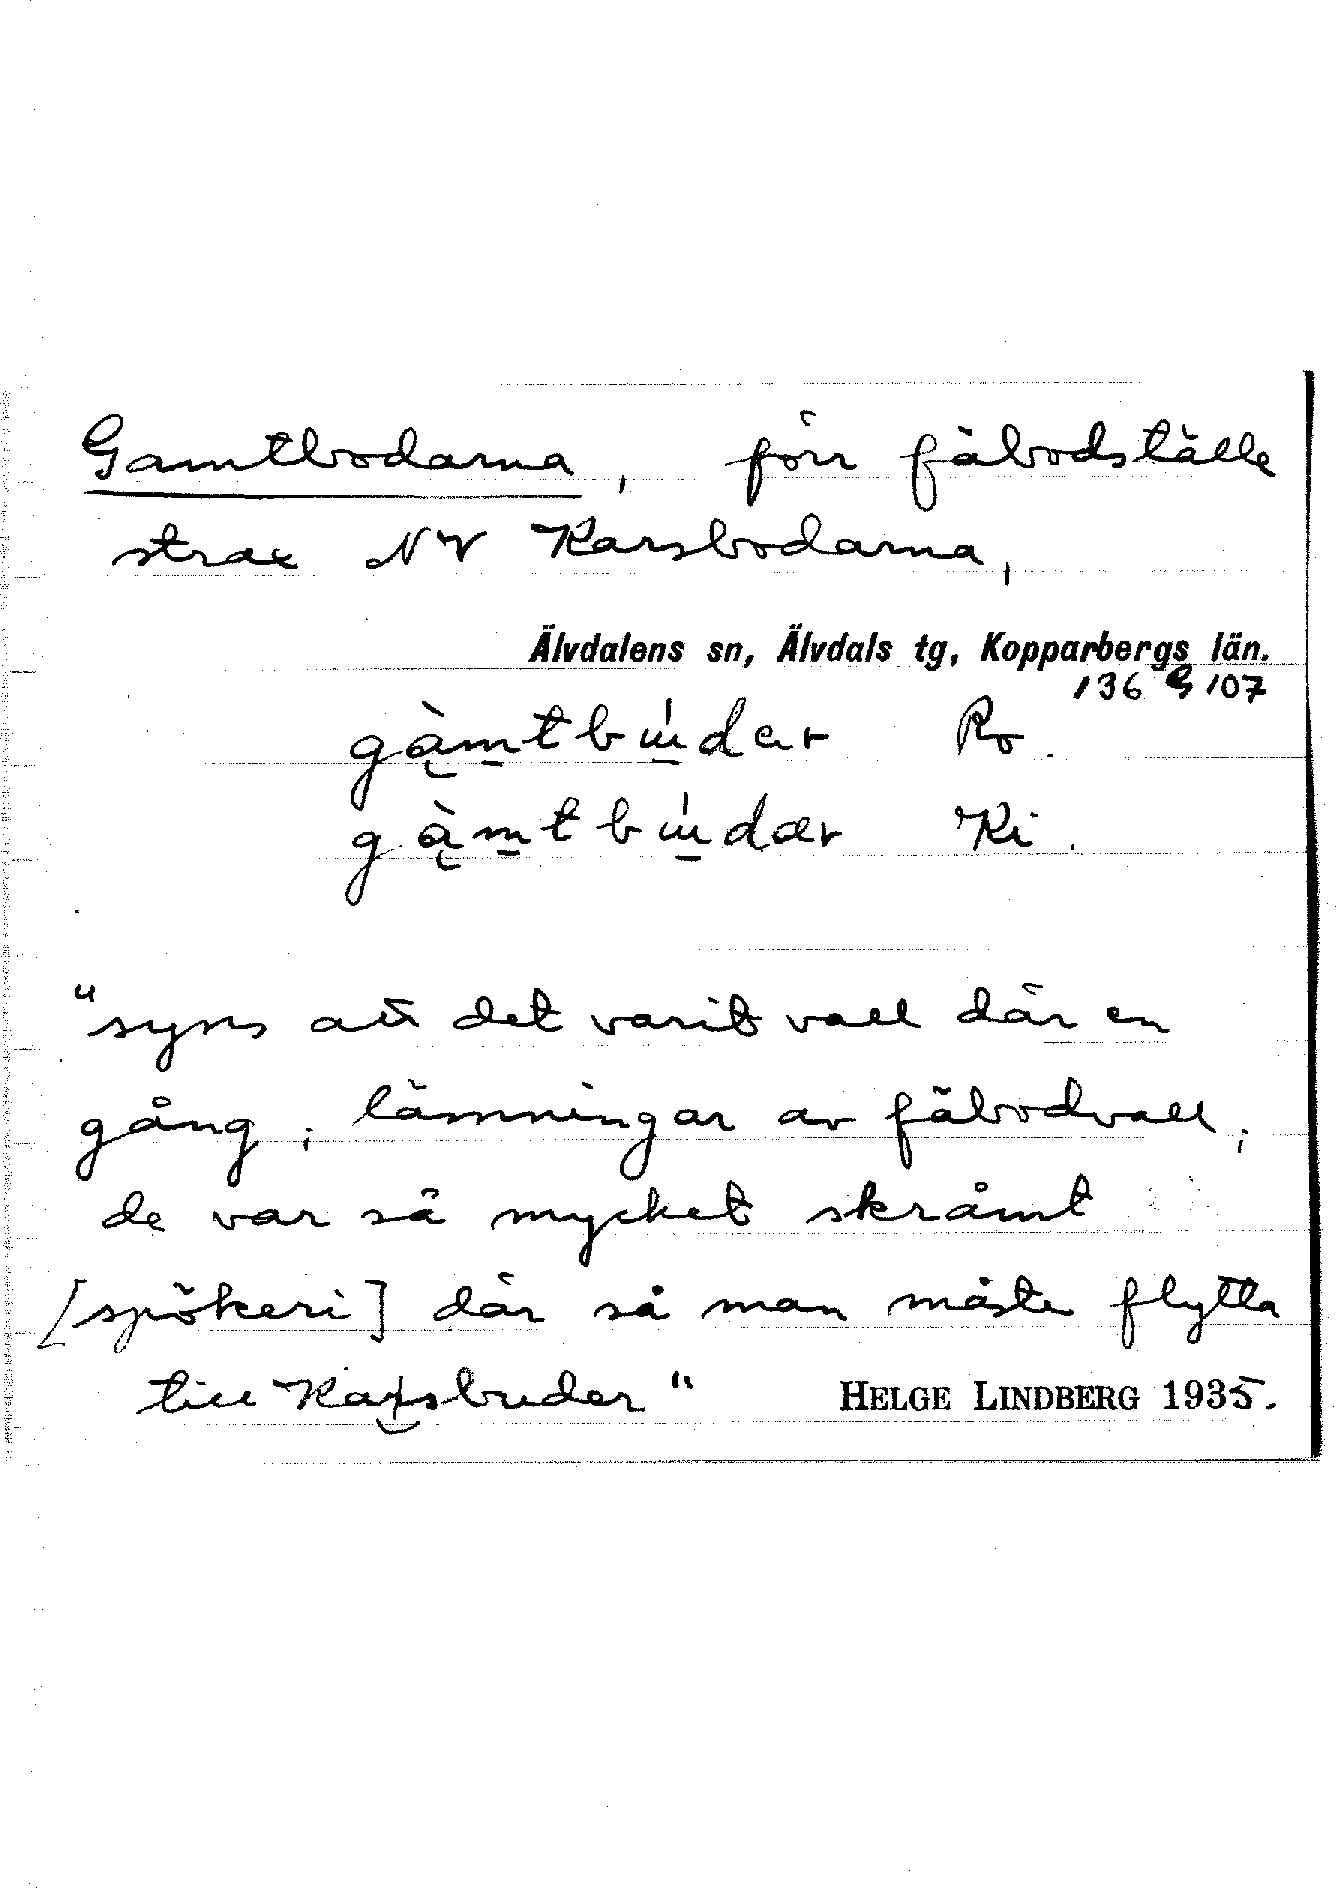 Gamtbodarna, förr fäbodställe
strax NV Karsbodarna,
Älvdalens sn, Älvdals tg, Kopparbergs län.
136 G 107
Ro.
Ki.
"syns att det varit vall där en
gång; lämningar av fäbodvall;
de var så mycket skrämt
[spökeri] där så man måste flytta
till Karsbuder"
HELGE LINDBERG 1935.